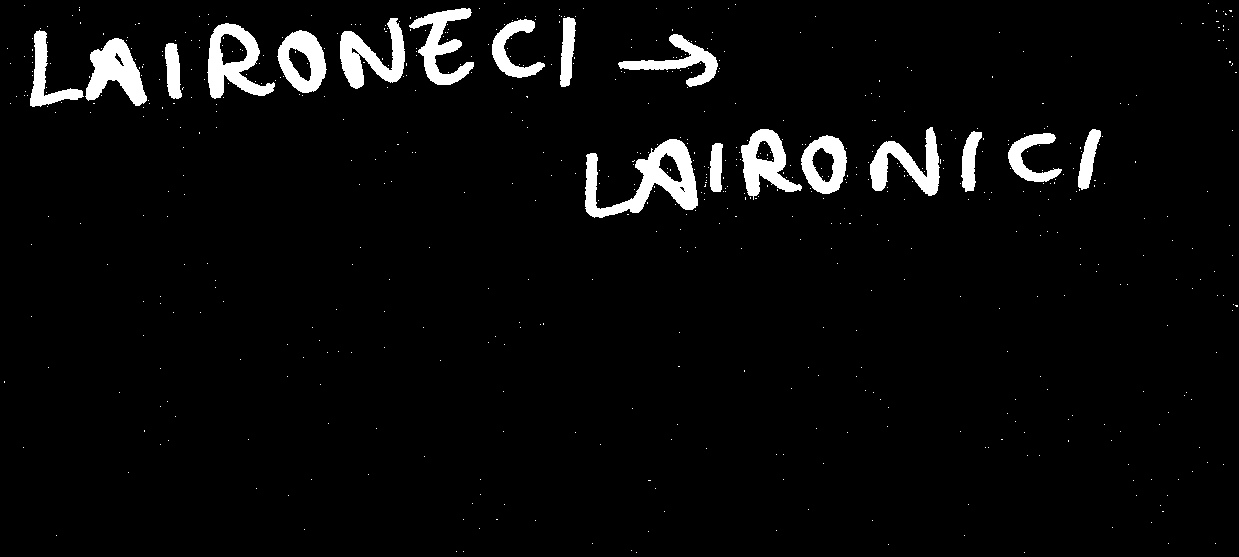 LAIRONECI →
LAIRONICI